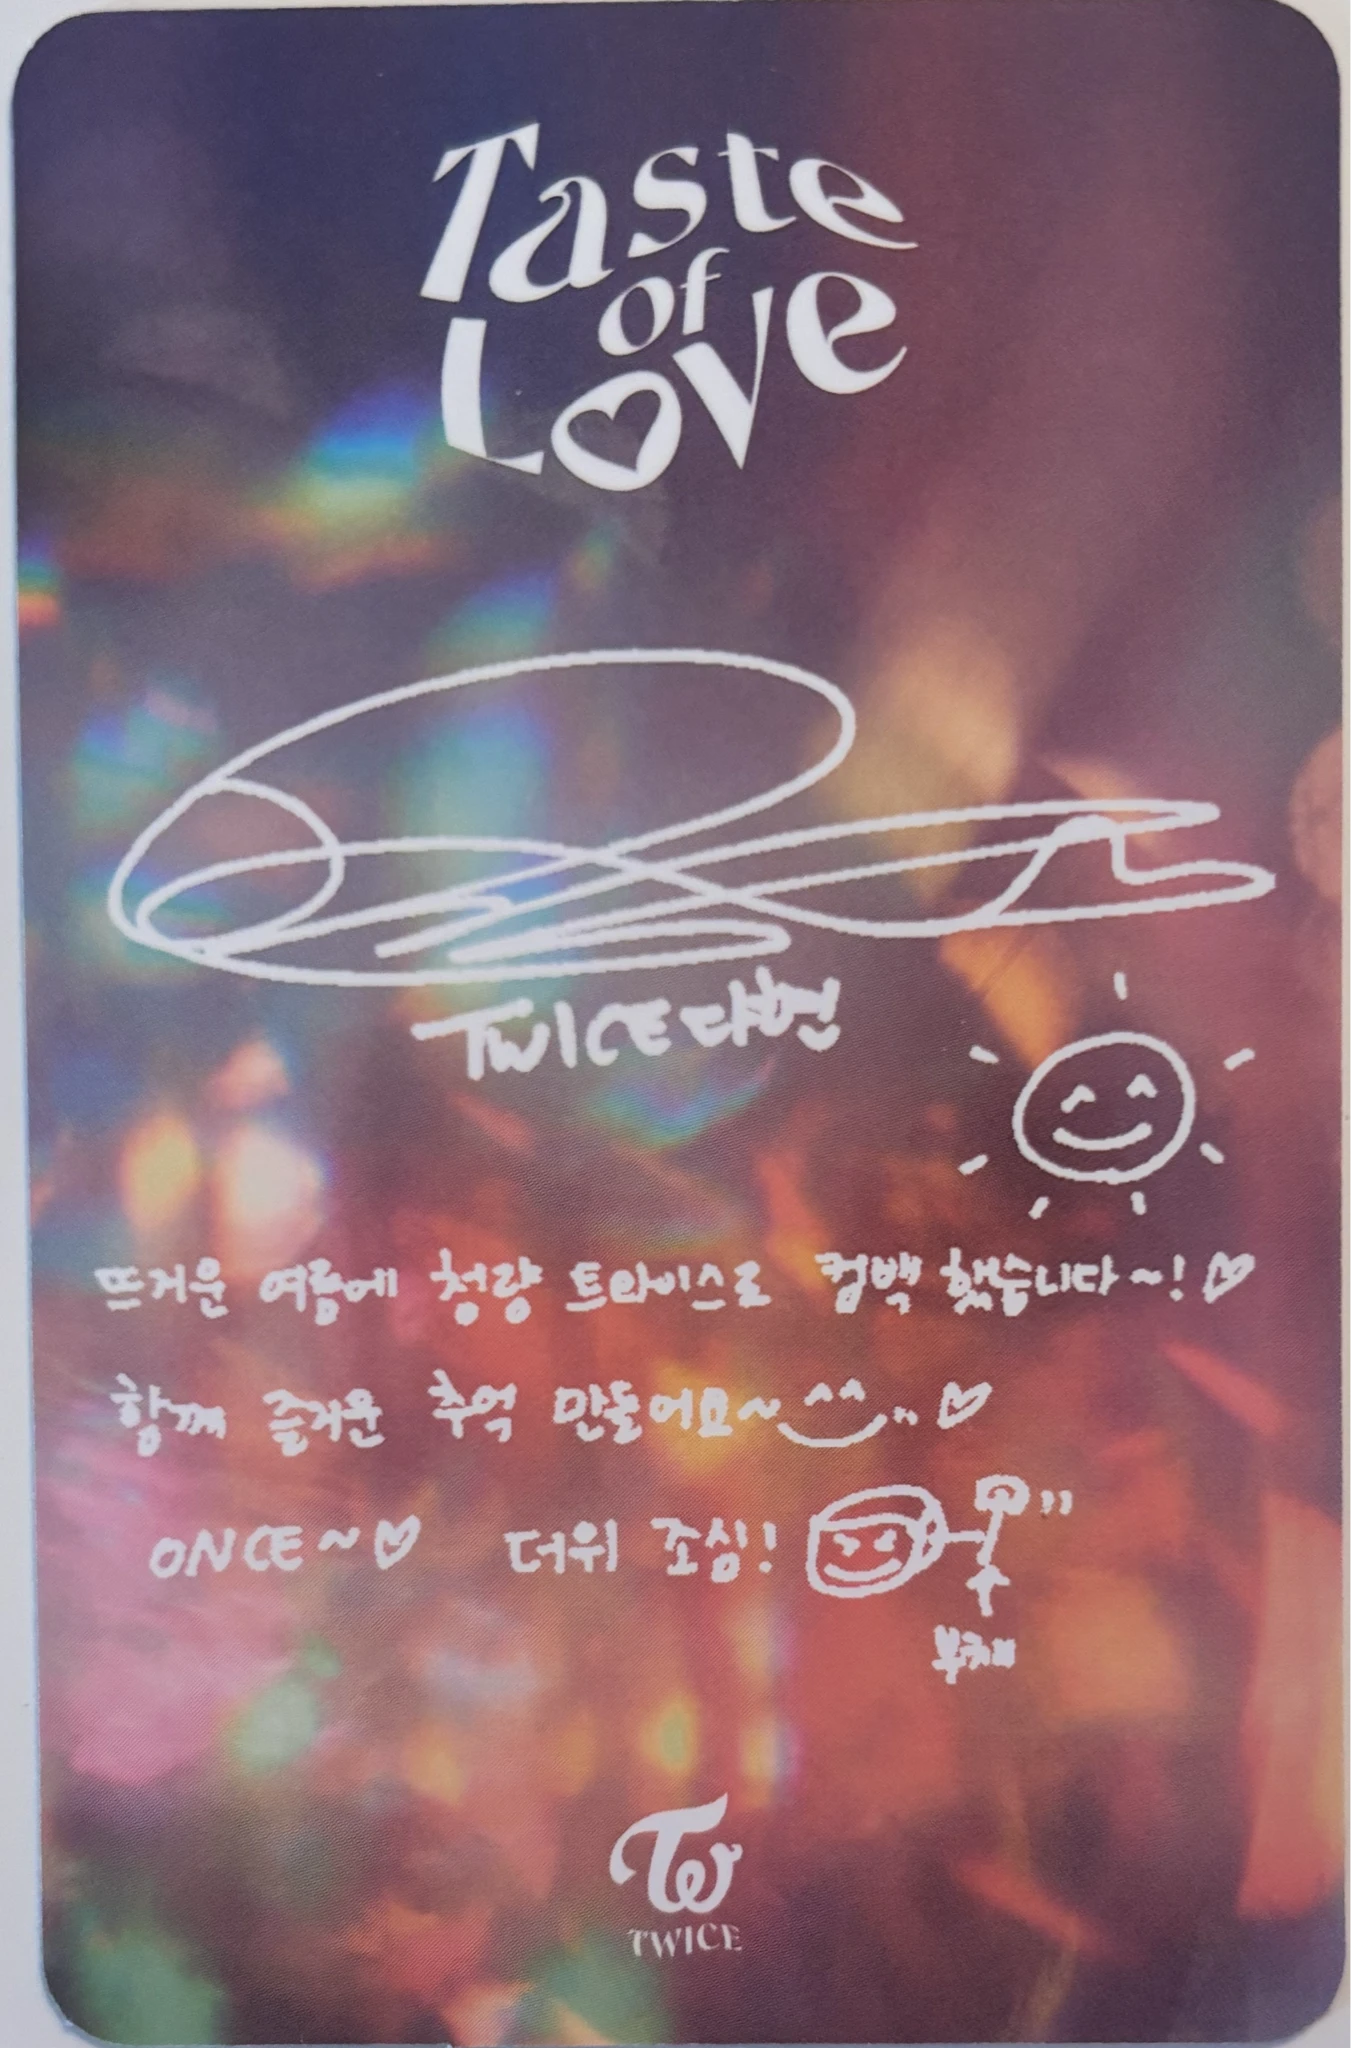 Taste
of
Love
TWICE다현
뜨거운 여름에 청량 트와이스로 컴백 했습니다~!♡
함께 즐거운 추억 만들어요~^^♡
ONCE~♡ 더위 조심!
부채
TWICE